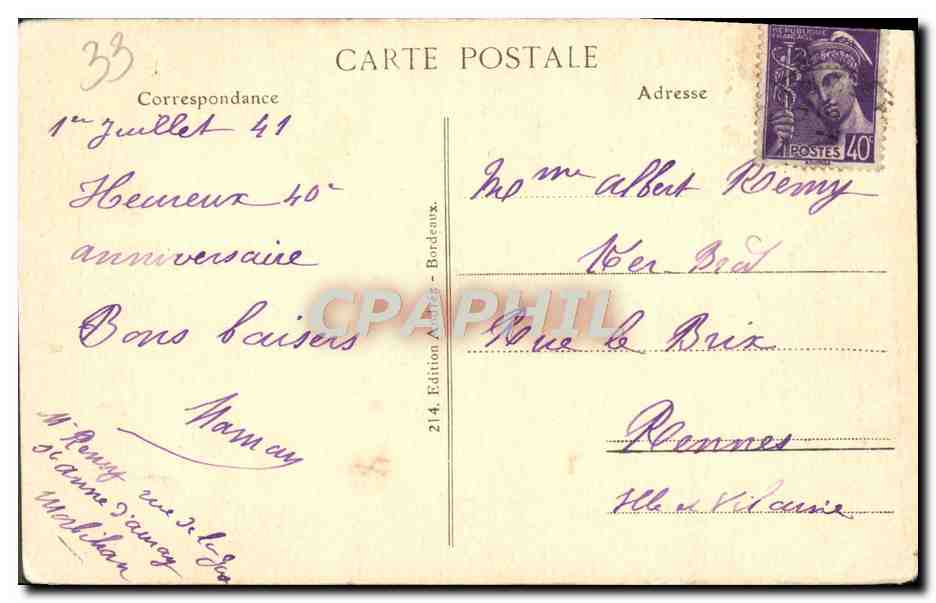 33
CARTE POSTALE
Correspondance
Adresse
RÉPUBLIQUE
FRANÇAISE
POSTES 40c
1er Juillet 41
Heureux 40e
anniversaire
Bons baisers
Maman
Mme Albert Remy
Ker Brad
Rue le Brix
Rennes
Ille et Vilaine
214. Edition Andrès - Bordeaux.
Mr Remy rue de la
St anne d'auray
Morbihan
CPAPHIL